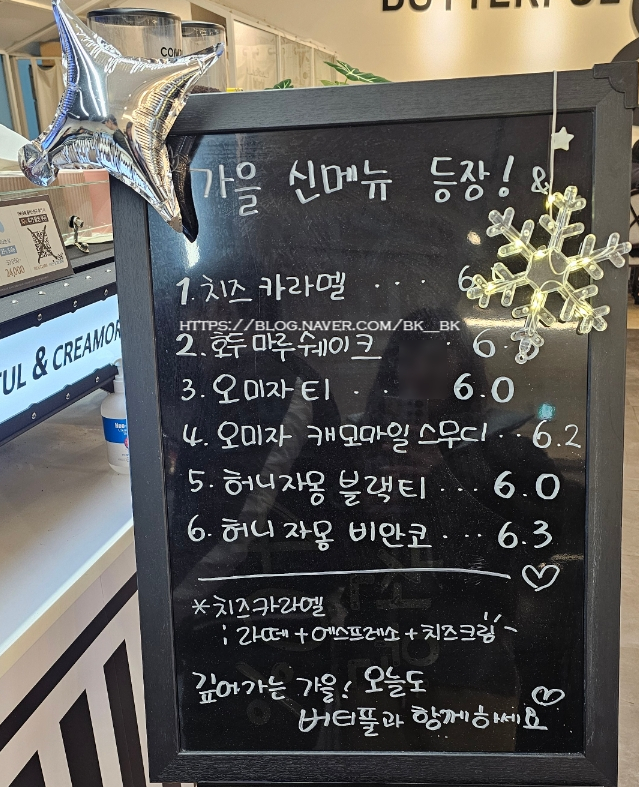 BUTTERFUL
COM
가을 신메뉴 등장! &
1. 치즈 카라멜 ··· 6.
HTTPS://BLOG.NAVER.COM/BK__BK
2. 호두마루쉐이크 · 6.
3. 오미자티 ·· 6.0
4. 오미자 캐모마일스무디 ·· 6.2
5. 허니자몽 블랙티 ··· 6.0
6. 허니자몽 비안코 ··· 6.3
*치즈카라멜
: 라떼+에스프레소+치즈크림
깊어가는 가을! 오늘도
버터풀과 함께하세요
24,000
UL & CREAMOR